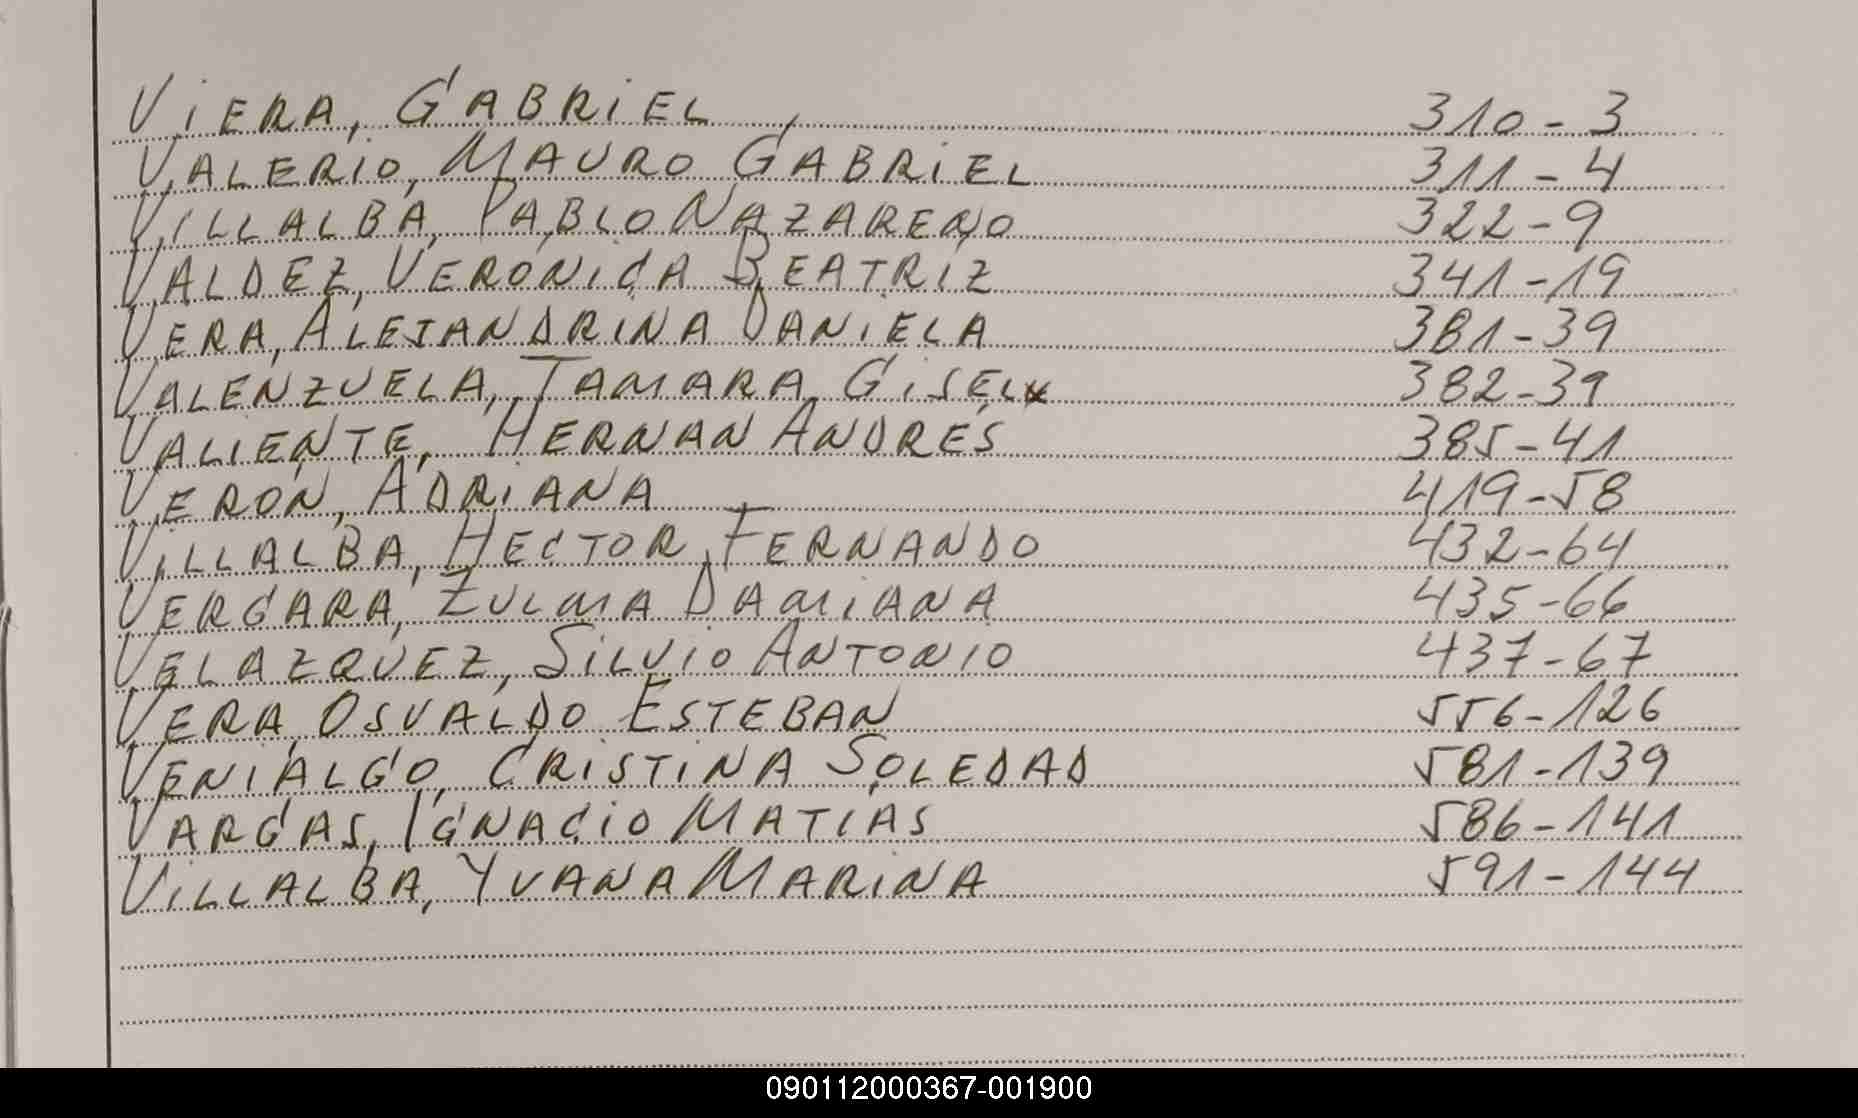 VIERA, GABRIEL , 310-3
VALERIO, MAURO GABRIEL 311-4
VILLALBA, PABLO NAZARENO 322-9
VALDEZ, VERONICA BEATRIZ 341-19
VERA, ALEJANDRINA DANIELA 381-39
VALENZUELA, TAMARA GISEL 382-39
VALIENTE, HERNAN ANDRES 385-41
VERON, ADRIANA 419-58
VILLALBA, HECTOR FERNANDO 432-64
VERGARA, ZULMA DAMIANA 435-66
VELAZQUEZ, SILVIO ANTONIO 437-67
VERA, OSVALDO ESTEBAN 556-126
VENIALGO, CRISTINA SOLEDAD 581-139
VARGAS, IGNACIO MATIAS 586-141
VILLALBA, YVANA MARINA 591-144
090112000367-001900